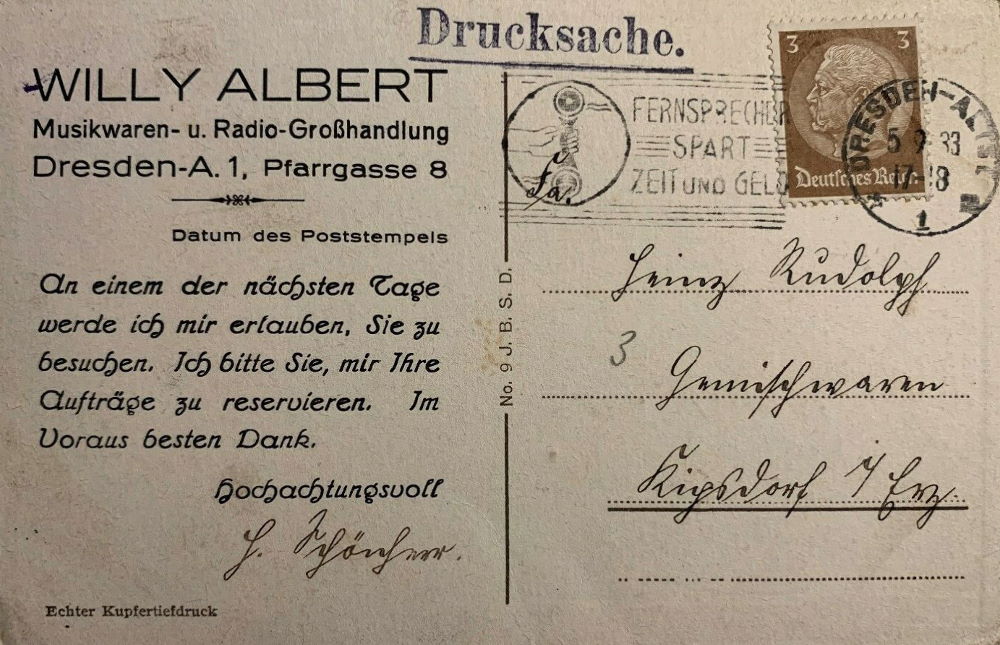 Drucksache.
WILLY ALBERT
Musikwaren- u. Radio-Großhandlung
Dresden-A. 1, Pfarrgasse 8
Datum des Poststempels
An einem der nächsten Tage
werde ich mir erlauben, Sie zu
besuchen. Ich bitte Sie, mir Ihre
Aufträge zu reservieren. Im
Voraus besten Dank.
Hochachtungsvoll
H. Schönherr.
Echter Kupfertiefdruck
No. 9 J. B. S. D.
FERNSPRECHER
SPART
ZEIT UND GELD
3 3
Deutsches Reich
DRESDEN-ALTST.
5 9 33
17-18
1
Fa.
Heinz Rudolph
3
Gemischwaren
Kipsdorf i/Erz.